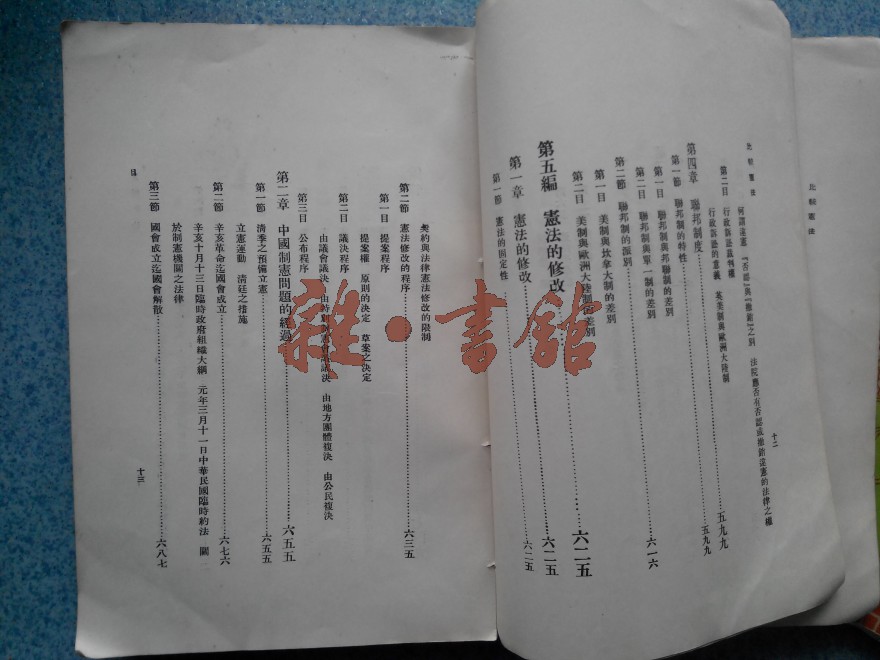 比較憲法
比較憲法
十二
何謂違憲 『否認』與『撤銷』之別 法院應否有否認或撤銷違憲的法律之權
第二目 行政訴訟裁判權……五九九
行政訴訟的意義 英美制與歐洲大陸制
第四章 聯邦制度……五九九
第一節 聯邦制的特性
第一目 聯邦制與邦聯制的差別
第二目 聯邦制與單一制的差別……六一六
第二節 聯邦制的派別
第一目 美制與坎拿大制的差別
第二目 美制與歐洲大陸制的差別
第五編 憲法的修改……六二五
第一章 憲法的修改……六二五
第一節 憲法的固定性……六二五
契約與法律憲法修改的限制
第二節 憲法修改的程序……六三五
第一目 提案程序
提案權 原則的決定 草案之決定
第二目 議決程序
由議會議決 由特別制憲會議議決 由地方團體複決 由公民複決
第三目 公布程序
第二章 中國制憲問題的經過……六五五
第一節 清季之預備立憲……六五五
立憲運動 清廷之措施
第二節 辛亥革命迄國會成立……六七六
辛亥十月十三日臨時政府組織大綱 元年三月十一日中華民國臨時約法 關
於制憲機關之法律
第三節 國會成立迄國會解散……六八七
目
十三
雜·書館